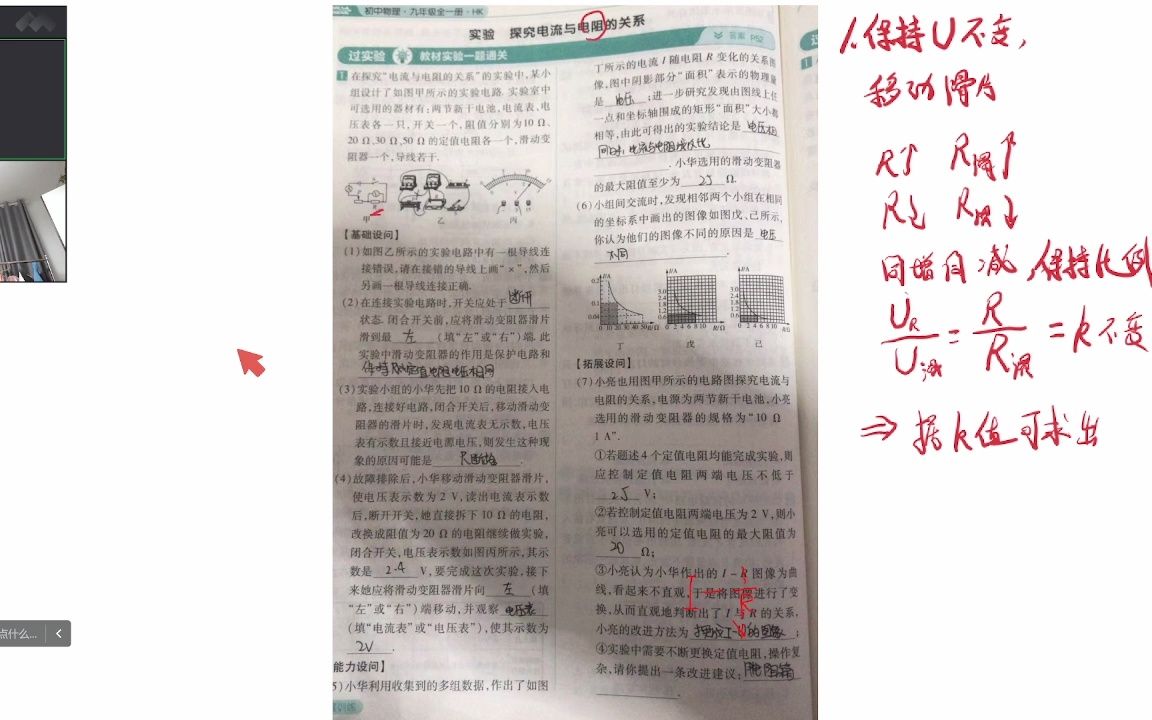 初中物理·九年级全一册·HK
实验 探究电流与电阻的关系
过实验 教材实验一题通关
答案 P52
1 在探究“电流与电阻的关系”的实验中,某小
组设计了如图甲所示的实验电路.实验室中
可选用的器材有:两节新干电池,电流表、电
压表各一只,开关一个,阻值分别为10 Ω、
20 Ω、30 Ω、50 Ω 的定值电阻各一个,滑动变
阻器一个,导线若干.
甲 乙 丙
【基础设问】
(1)如图乙所示的实验电路中有一根导线连
接错误,请在接错的导线上画“×”,然后
另画一根导线连接正确.
(2)在连接实验电路时,开关应处于 断开
状态.闭合开关前,应将滑动变阻器滑片
滑到最 左 (填“左”或“右”)端.此
实验中滑动变阻器的作用是保护电路和
保持定值电阻电压相同
(3)实验小组的小华先把10 Ω的电阻接入电
路,连接好电路,闭合开关后,移动滑动变
阻器的滑片时,发现电流表无示数,电压
表有示数且接近电源电压,则发生这种现
象的原因可能是 R断路 .
(4)故障排除后,小华移动滑动变阻器滑片,
使电压表示数为 2 V,读出电流表示数
后,断开开关,她直接拆下 10 Ω 的电阻,
改换成阻值为 20 Ω 的电阻继续做实验,
闭合开关,电压表示数如图丙所示,其示
数是 2.4 V,要完成这次实验,接下
来她应将滑动变阻器滑片向 左 (填
“左”或“右”)端移动,并观察 电压表
(填“电流表”或“电压表”),使其示数为
2V .
能力设问】
5)小华利用收集到的多组数据,作出了如图
丁所示的电流 I 随电阻 R 变化的关系图
像,图中阴影部分“面积”表示的物理量
是 电压 ;进一步研究发现由图线上任
一点和坐标轴围成的矩形“面积”大小都
相等,由此可得出的实验结论是 电压相
同时,电流与电阻成反比
.小华选用的滑动变阻器
的最大阻值至少为 25 Ω.
(6)小组间交流时,发现相邻两个小组在相同
的坐标系中画出的图像如图戊、己所示,
你认为他们的图像不同的原因是 电压
不同 .
丁 戊 己
【拓展设问】
(7)小亮也用图甲所示的电路图探究电流与
电阻的关系,电源为两节新干电池,小亮
选用的滑动变阻器的规格为“10 Ω
1 A”.
①若题述 4 个定值电阻均能完成实验,则
应控制定值电阻两端电压不低于
2.5 V;
②若控制定值电阻两端电压为 2 V,则小
亮可以选用的定值电阻的最大阻值为
20 Ω;
③小亮认为小华作出的 I－R 图像为曲
线,看起来不直观,于是将图像进行了变
换,从而直观地判断出了 I 与 R 的关系,
小亮的改进方法为
④实验中需要不断更换定值电阻,操作复
杂,请你提出一条改进建议: 用电阻箱
1.保持U不变,
移动滑片
R↑ R滑↑
R↓ R滑↓
同增同减,保持比例
U_R/U_滑 = R/R_滑 = k不变
⇒ 据k值可求出
点什么...